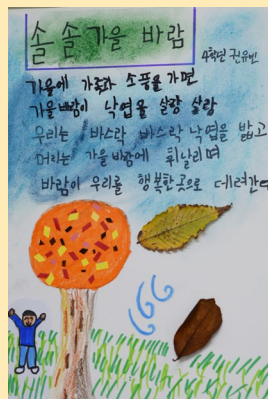 솔솔 가을 바람
4학년 권유빈
가을에 가족과 소풍을 가면
가을 바람이 낙엽을 살랑 살랑
우리는 바스락 바스락 낙엽을 밟고
머리는 가을 바람에 휘날리며
바람이 우리를 행복한 곳으로 데려간다